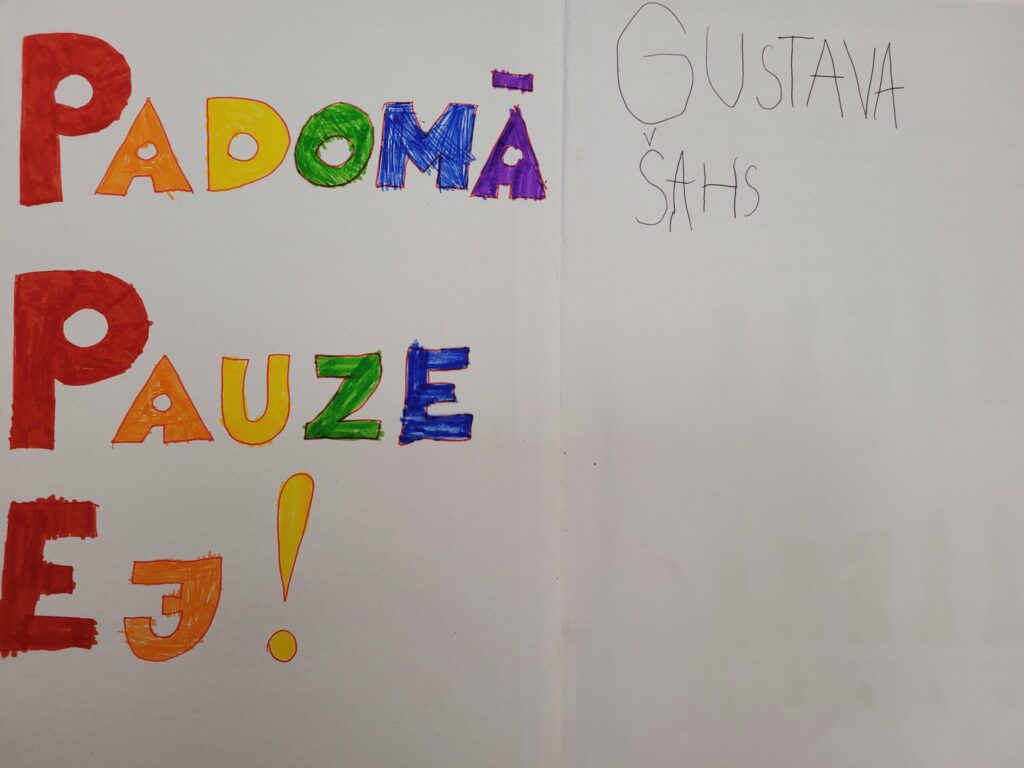 PADOMĀ
PAUZE
EJ!
GUSTAVA
ŠAHS